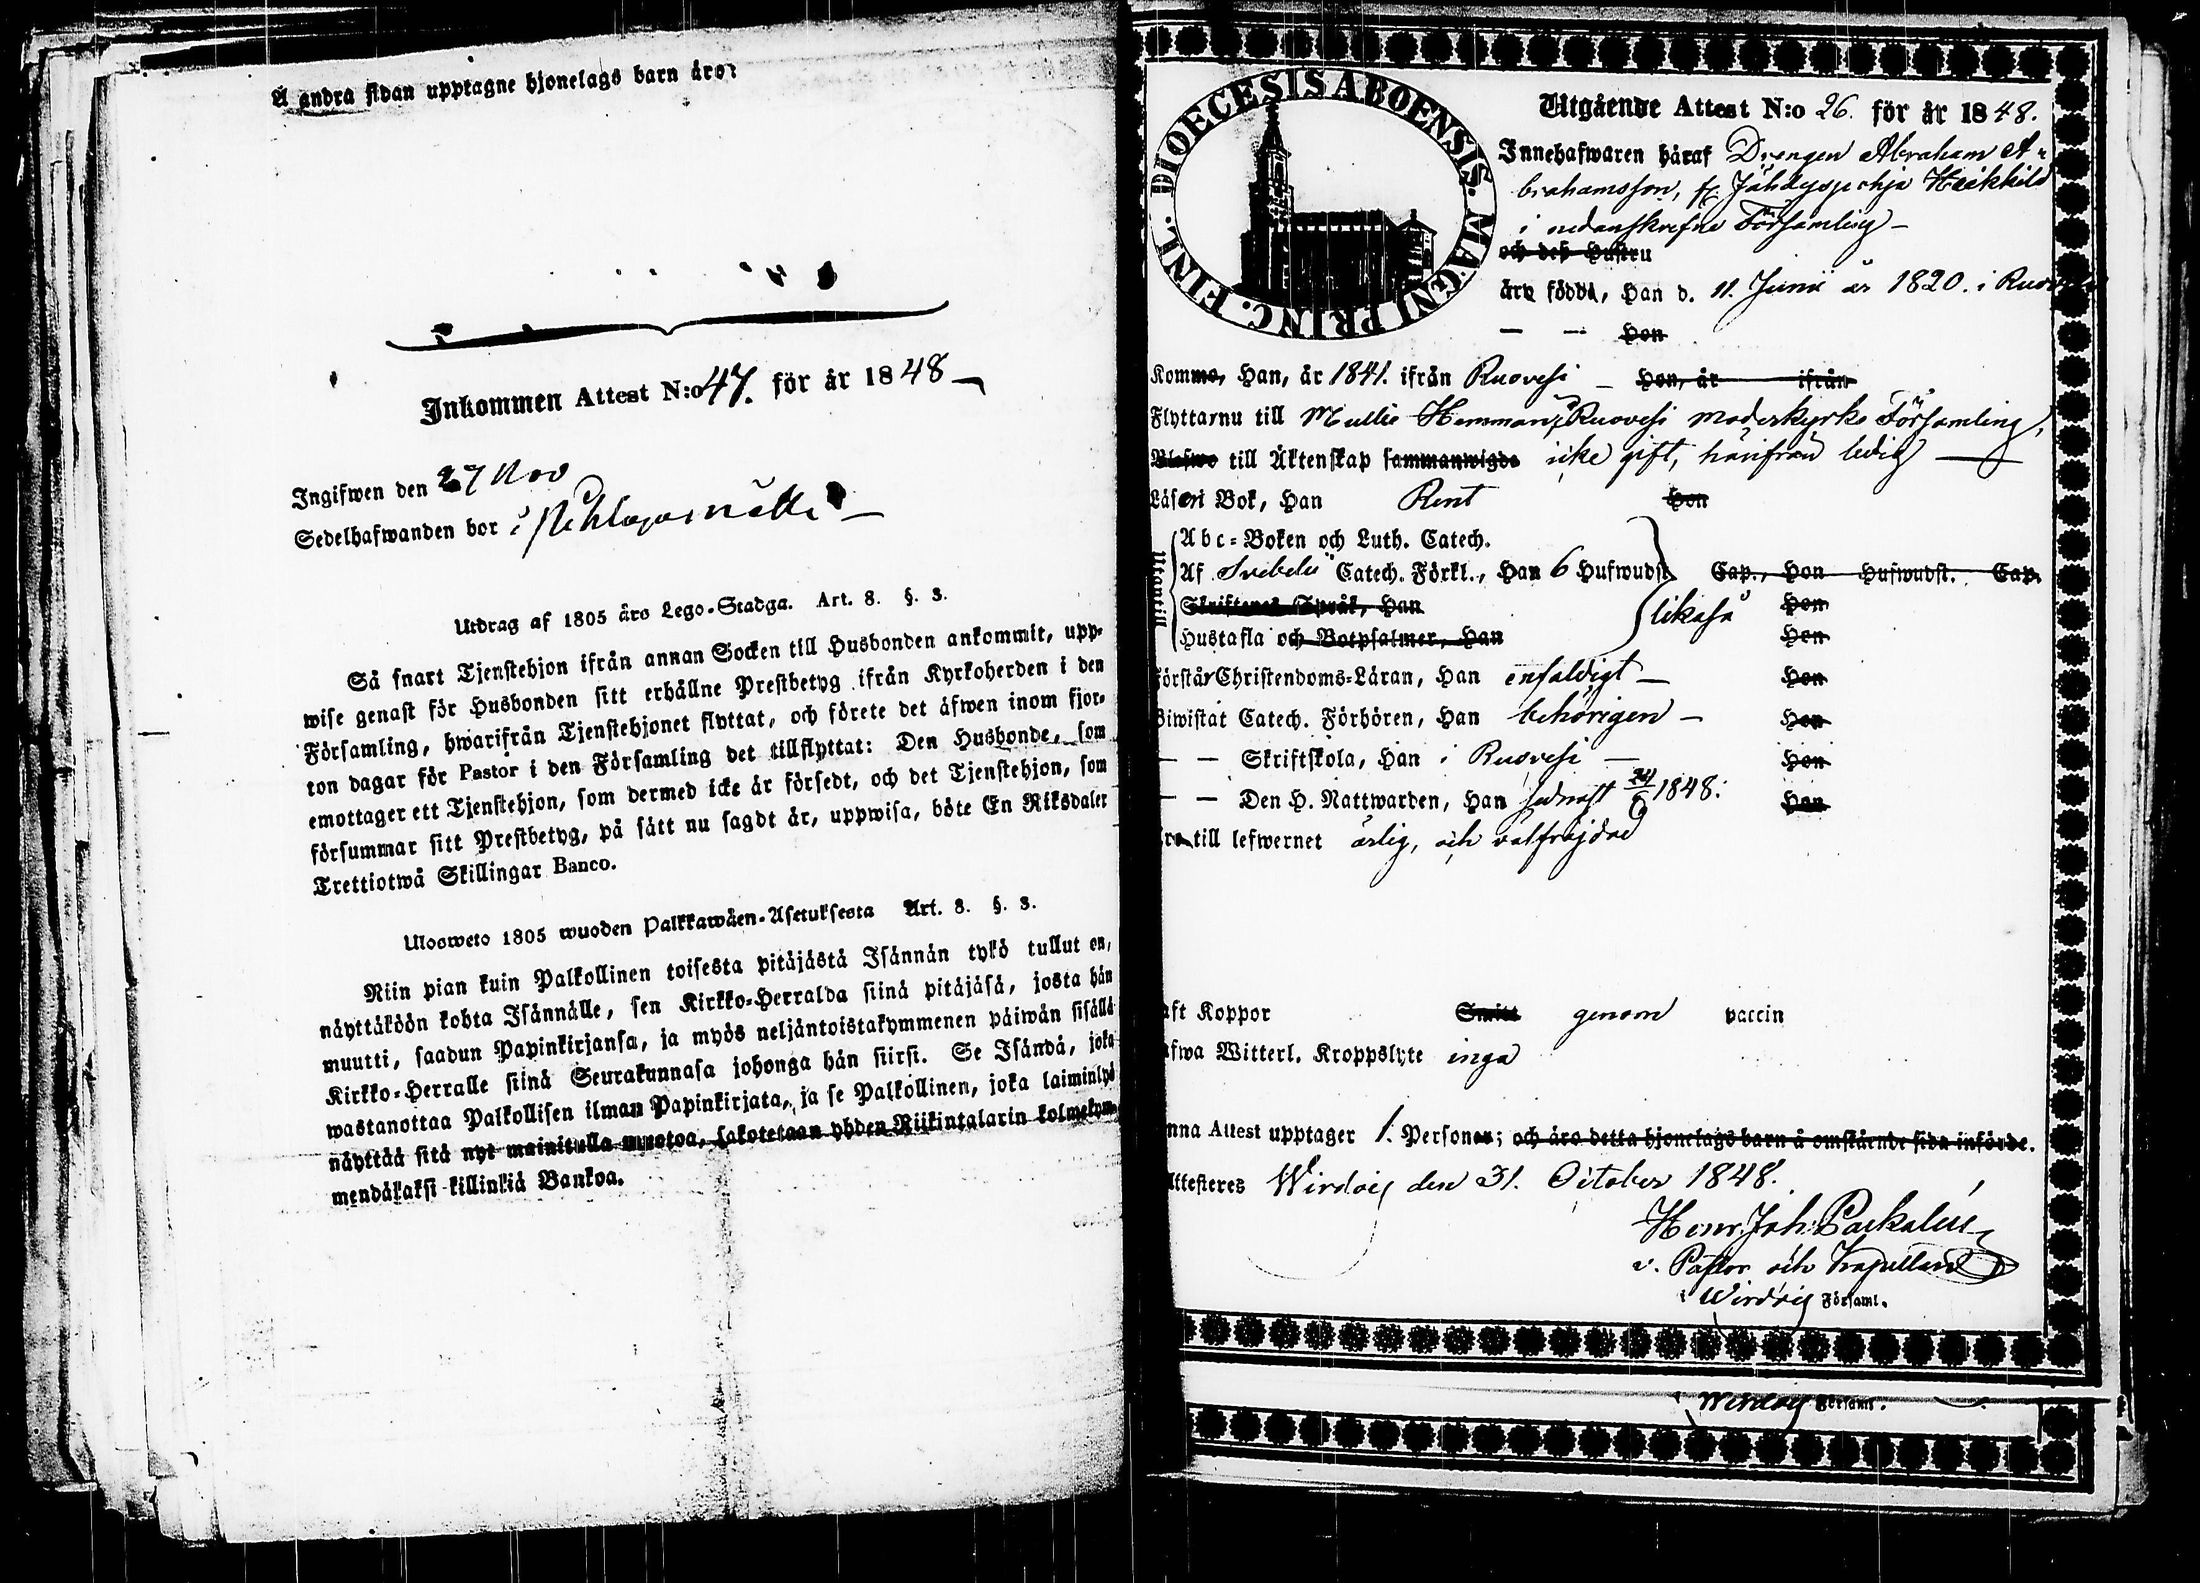 Å andra sidan upptagne hjonelags barn äro:
Inkommen Attest N:o 47. för år 1848
Ingifwen den 27 Nov
Sedelhafwanden bor i
Utdrag af 1805 års Lego-Stadga. Art. 8. §. 3.
Så snart Tjenstehjon ifrån annan Socken till Husbonden ankommit, upp-
wise genast för Husbonden sitt erhållne Prestbetyg ifrån Kyrkoherden i den
Församling, hwarifrån Tjenstehjonet flyttat, och förete det äfwen inom fjor-
ton dagar för Pastor i den Församling det tillflyttat: Den Husbonde, som
emottager ett Tjenstehjon, som dermed icke är försedt, och det Tjenstehjon, som
försummar sitt Prestbetyg, på sätt nu sagdt är, uppwisa, böte En Riksdaler
Trettiotwå Skillingar Banco.
Ulosweto 1805 wuoden Palkkawäen-Asetuksesta Art. 8. §. 3.
Niin pian kuin Palkollinen toisesta pitäjästä Isännän tykö tullut on,
näyttäköön kohta Isännälle, sen Kirkko-Herralda siinä pitäjäsä, josta hän
muutti, saadun Papinkirjansa, ja myös neljäntoistakymmenen päiwän sisällä
Kirkko-Herralle siinä Seurakunnasa johonga hän siirsi. Se Isändä, joka
wastanottaa Palkollisen ilman Papinkirjata, ja se Palkollinen, joka laiminlyö
näyttää sitä nyt mainitulla muotoa, sakotetaan yhden Riikintalarin kolmekym-
mendäkaksi killinkiä Bankoa.
DIOECESIS ABOENSIS. MAGNI PRINC. FINL.
Utgående Attest N:o 26. för år 1848.
Innehafwaren häraf Drengen Abraham A-
brahamsson, fr. Jähdyspohja Heikkilä
i nedanskrefne Församling
och deß Hustru
äro födde, Han d. 11. Junii år 1820. i
Hon
Komme, Han, år 1841. ifrån Ruovesi Hon, år ifrån
Flyttar nu till Mullis Hemman i Ruovesi moderkyrko Församling,
Blefwe till Äktenskap sammanwigde icke gift, härifrån ledig
Läser i Bok, Han Rent Hon
Utantill
Abc-Boken och Luth. Catech.
Af Svebelii Catech. Förkl., Han 6 Hufwudst. Cap., Hon Hufwudst. Cap.
Skriftenes Språk, Han likaså Hon
Hustafla och Botpsalmer, Han Hon
Förstår Christendoms-Läran, Han enfaldigt Hon
Biwistat Catech. Förhören, Han behörigen Hon
— — Skriftskola, Han i Ruovesi Hon
— — Den H. Nattwarden, Han sednast 1848. Hon
äro till lefwernet ärlig, och välfräjdad
aft Koppor Smitt genom vaccin
afwa Witterl. Kroppslyte inga
nna Attest upptager 1. Personer; och äro detta hjonelags barn å omstående sida införde.
Attesteres Wirdois den 31. October 1848.
Henr. Joh. Packalén
v. Pastor och Kapellan
i Wirdois Församl.
Wirdois Församl.